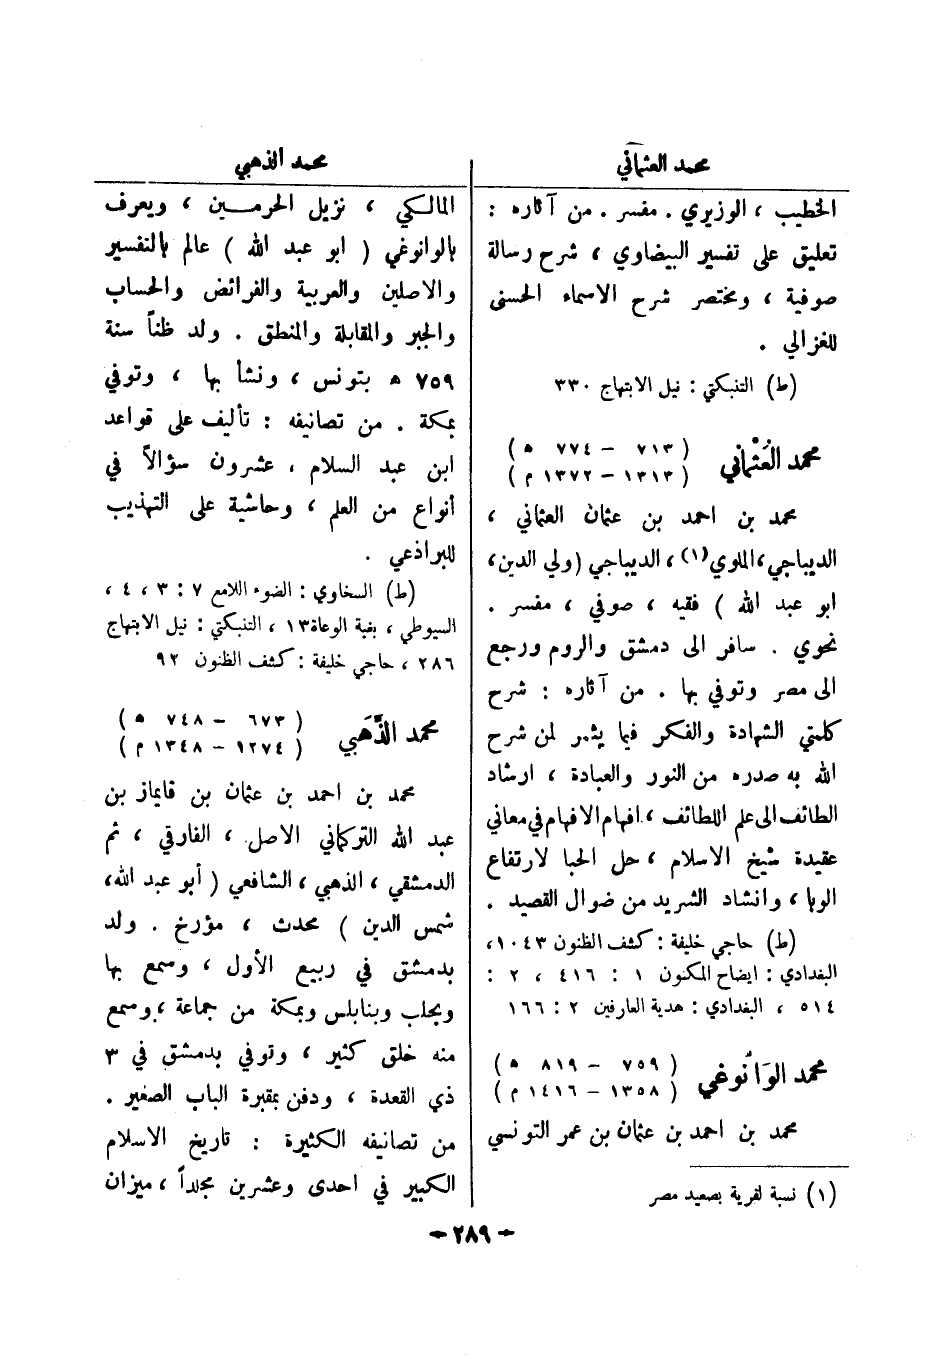 محمد العثماني
الخطيب ، الوزيري . مفسر . من آثاره :
تعليق على تفسير البيضاوي ، شرح رسالة
صوفية ، ومختصر شرح الاسماء الحسنى
للغزالي .
(ط) التنبكتي : نيل الابتهاج ٣٣٠
محمد العُثْماني
( ٧١٣ – ٧٧٤ ه )
( ١٣١٣ – ١٣٧٢ م )
محمد بن احمد بن عثمان العثماني ،
الديباجي ، الملوي (١) ، الديباجي (ولي الدين،
ابو عبد الله ) فقيه ، صوفي ، مفسر .
نحوي . سافر الى دمشق والروم ورجع
الى مصر وتوفي بها . من آثاره : شرح
كلمتي الشهادة والفكر فيما يثمر لمن شرح
الله به صدره من النور والعبادة ، ارشاد
الطائف الى علم اللطائف ، افهام الافهام في معاني
عقيدة شيخ الاسلام ، حل الحبا لارتفاع
الوبا ، وانشاد الشريد من ضوال القصيد .
(ط) حاجي خليفة : كشف الظنون ١٠٤٣،
البغدادي : ايضاح المكنون ١ : ٤١٦ ، ٢ :
٥١٤ ، البغدادي : هدية العارفين ٢ : ١٦٦
محمد الوَانُوغي
( ٧٥٩ – ٨١٩ ه )
( ١٣٥٨ – ١٤١٦ م )
محمد بن احمد بن عثمان بن عمر التونسي
(١) نسبة لقرية بصعيد مصر
محمد الذهبي
المالكي ، نزيل الحرمين ، ويعرف
بالوانوغي ( ابو عبد الله ) عالم بالتفسير
والاصلين والعربية والفرائض والحساب
والجبر والمقابلة والمنطق . ولد ظناً سنة
٧٥٩ ه بتونس ، ونشأ بها ، وتوفي
بمكة . من تصانيفه : تأليف على قواعد
ابن عبد السلام ، عشرون سؤالاً في
أنواع من العلم ، وحاشية على التهذيب
للبراذعي .
(ط) السخاوي : الضوء اللامع ٧ : ٣ ، ٤ ،
السيوطي ، بغية الوعاة ١٣ ، التنبكتي : نيل الابتهاج
٢٨٦ ، حاجي خليفة : كشف الظنون ٩٢
محمد الذَّهَبي
( ٦٧٣ – ٧٤٨ ه )
( ١٢٧٤ – ١٣٤٨ م )
محمد بن احمد بن عثمان بن قايماز بن
عبد الله التركماني الاصل ، الفارقي ، ثم
الدمشقي ، الذهبي ، الشافعي ( أبو عبد الله،
شمس الدين ) محدث ، مؤرخ . ولد
بدمشق في ربيع الأول ، وسمع بها
وبحلب وبنابلس وبمكة من جماعة ، وسمع
منه خلق كثير ، وتوفي بدمشق في ٣
ذي القعدة ، ودفن بمقبرة الباب الصغير .
من تصانيفه الكثيرة : تاريخ الاسلام
الكبير في احدى وعشرين مجلداً ، ميزان
– ٢٨٩ –